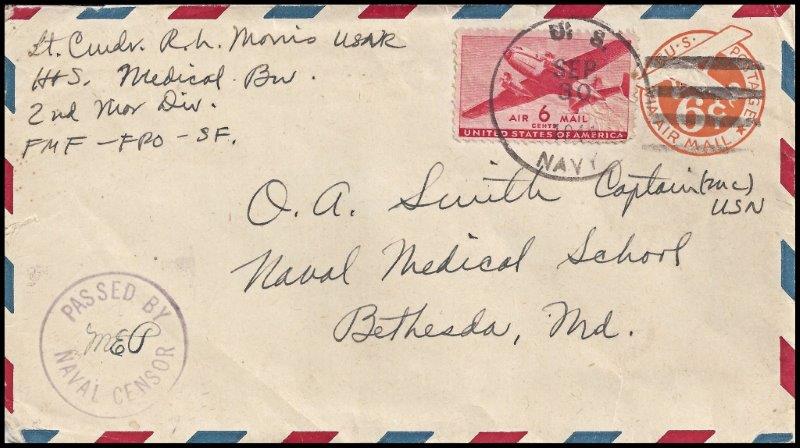 Lt. Cmdr. R.L. Morris USNR
H+S. Medical Bn.
2nd Mar Div.
FMF-FPO-SF.
AIR 6 MAIL
CENTS
UNITED STATES OF AMERICA
U. S.
SEP
30
NAVY
U.S. POSTAGE
6c
VIA AIR MAIL
O. A. Smith Captain (MC)
USN
Naval Medical School
Bethesda, Md.
PASSED BY
NAVAL CENSOR